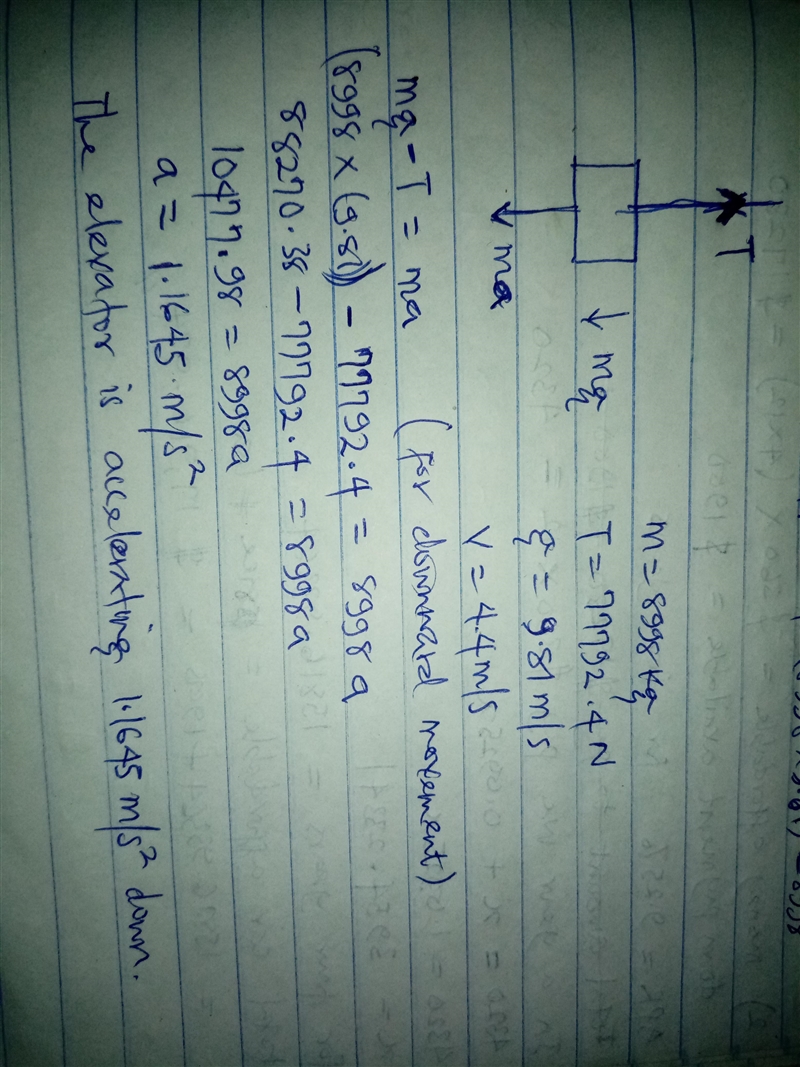 T
mg
ma
m = 8998 kg
T = 77792.4 N
g = 9.81 m/s
V = 4.4 m/s
mg - T = ma (for downward movement)
(8998 x (9.81)) - 77792.4 = 8998 a
88270.38 - 77792.4 = 8998a
10477.98 = 8998a
a = 1.1645 m/s²
The elevator is accelerating 1.1645 m/s² down.